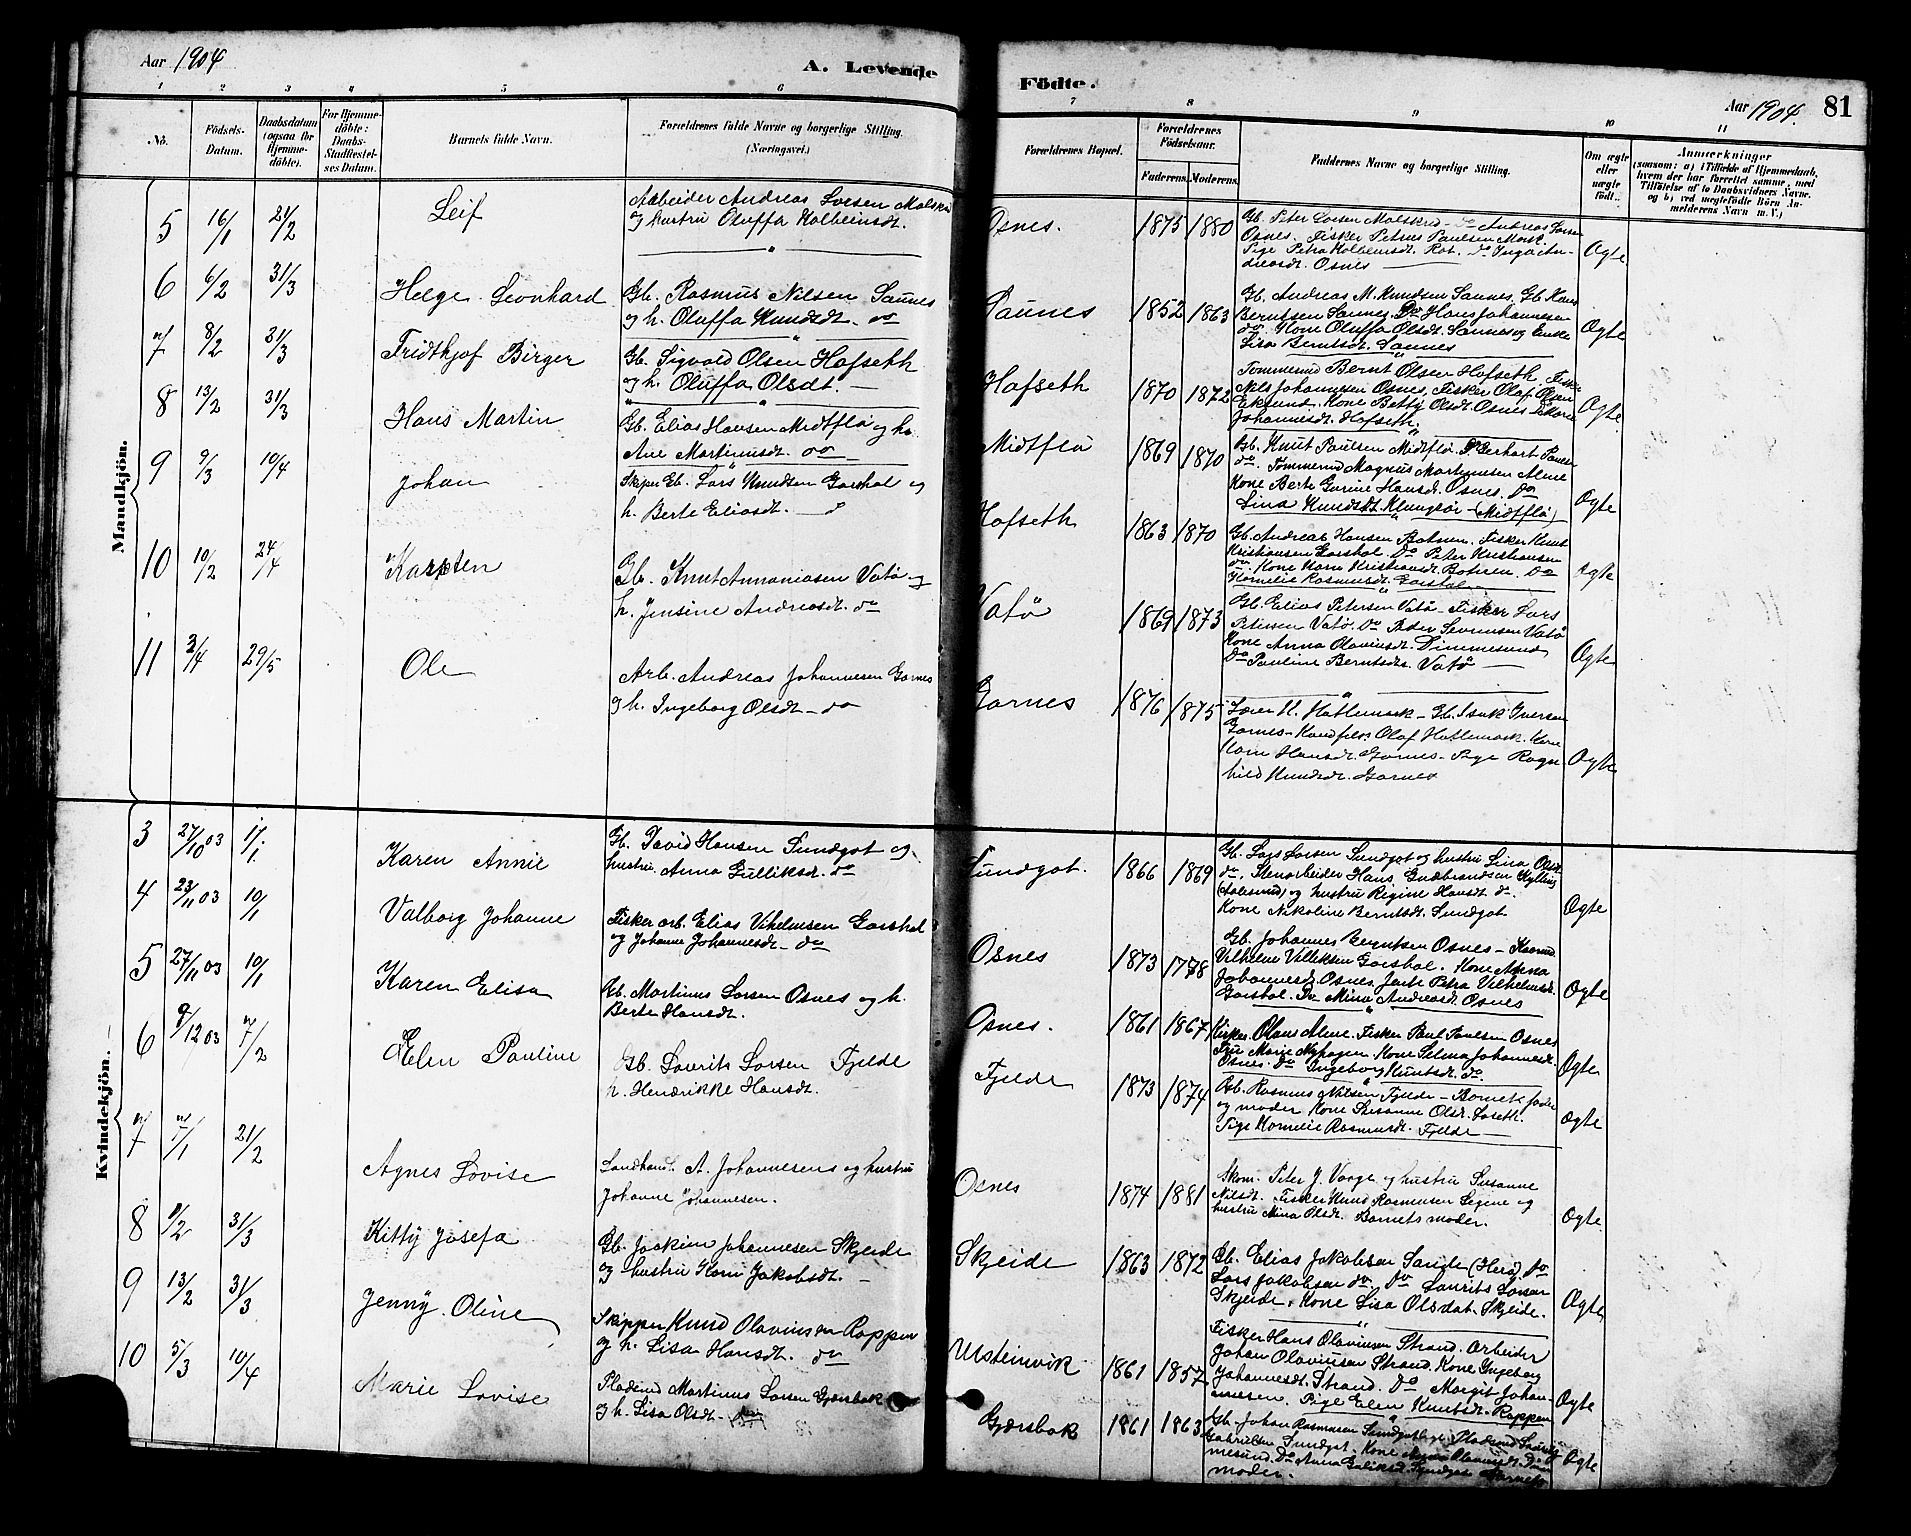 Aar 1904
A. Levende
Födte.
Aar 1904.
81
1 2 3 4 5 6 7 8 9 10 11
No.
Födsels-
Datum.
Daabsdatum
(ogsaa för
Hjemme-
döbte).
For Hjemme-
döbte:
Daabs-
Stadfæstel-
ses Datum.
Barnets fulde Navn.
Forældrenes fulde Navne og borgerlige Stilling.
(Næringsvei.)
Forældrenes Bopæl.
Forældrenes
Födselsaar.
Faderens. Moderens.
Faddernes Navne og borgerlige Stilling.
Om ægte
eller
uægte
födt.
Anmærkninger
(saasom: a) i Tilfælde af Hjemmedaab,
hvem der har forrettet samme, med
Tilföielse af to Daabsvidners Navne,
og b) ved uægtefödte Börn An-
melderens Navn m. V.)
Mandkjön.
5 16/1 21/2 Leif
Arbeider Andreas Larsen
og hustru Oluffa Kolbeinsdt.
Osnes. 1875 1880
Gb. Peter Larsen Do Andreas Larsen
Osnes. Fisker Petter Paulsen Mork
Pige Petra Kolbeinsdt.
Osnes
Ægte
6 6/2 31/3 Helge Leonhard
Gb. Rasmus Nilsen Saunes
og h. Oluffa Knudsdt. do
Saunes 1852 1863
Gb. Andreas M. Knudsen Saunes. Gb. Hans
Berntsen Saunes. Do Hans Johannesen
do. Kone Oluffa Olsdt. Saunes og Enke
Lisa Berntsdt. Saunes
Ægte
7 8/2 31/3 Fridthjof Birger
Gb. Sigvald Olsen Hofseth
og h. Oluffa Olsdt.
Hofseth 1870 1872
Tömmermd Bernt Olsen Hofseth, Fisker
Nils Johannesen Osnes, Fisker Olaf Olsen
Eksund. Kone Betty Olsdt. Osnes
Johannesdt. Hofseth.
Ægte
8 13/2 31/3 Hans Martin
Gb. Elias Hansen Midtflø og h.
Ane Martinusdt. do
Midtflø 1869 1870
Gb. Knut Paulsen Midtflø. Gerhart Paulsen
do. Tömmermd Magnus Martinusen Alme
Kone Berte Gurine Hansdt. Osnes. Do
Lina Knudsdt. (Midtflø)
Ægte
9 9/3 10/4 Johan
Skipr Eb. Lars Knudsen Garshol og
h. Berte Eliasdt.
Hofseth 1863 1870
Gb. Andreas Hansen Botnen. Fisker Knut
Kristiansen Garshol. Do Peter Kristiansen
do. Kone Karn Kristiansdt. Botnen. Do
Kornelie Rasmusdt. Garshol
Ægte
10 10/2 24/4 Karsten
Gb. Knut Annaniasen Vatø og
h. Jensine Andreasdt. do
Vatø 1869 1873
Gb. Elias Petersen Vatø. Fisker Lars
Petersen Vatø. Do Peder Severinsen Vatø
Kone Anna Olaviusdt. Dimmesund
Do Pauline Berntsdt. Vatø
Ægte
11 2/4 29/5 Ole
Arb. Andreas Johannesen Garnes
og h. Ingeborg Olsdt. do
Garnes 1876 1875
Lærer H. Hatlemark. Gb. Isak Iversen
Garnes. Handelsb. Olaf Hatlemark. Kone
Karn Hansdt. Garnes. Pige Ragn-
hild Knudsdt. Garnes
Ægte
Kvindekjön.
3 27/10 03 1/1. Karen Annie
Gb. David Hansen Sundgot og
hustru Anna Gulliksdt. do
Sundgot. 1866 1869
Gb. Lars Larsen Sundgot og hustru Lina Olsdt.
do. Stenarbeider Hans Gudbrandsen
(Aalesund) og hustru Regine Hansdt. do
Kone Nikoline Berntsdt. Sundgot
Ægte
4 23/11 03 10/1 Valborg Johanne
Fisker arb. Elias Vilhelmsen Garshol
og Johanne Johannesdt. do
Osnes 1873 1778
Gb. Johannes Berntsen Osnes
Vilhelm Garshol. Kone Anna
Johannesdt. Osnes. Jente Petra Vilhelmsdt.
Garshol. Do Mina Andreasdt. Osnes
Ægte
5 27/11 03 10/1 Karen Elisa
Gb. Martinus Larsen Osnes og h.
Berte Hansdt.
Osnes. 1861 1867
Kirkes. Olaus Alme. Fisker Paul Paulsen Osnes
Frue Marie Myhagen. Kone Selma Johannesdt.
Osnes. Do Ingeborg Knutsdt. do.
Ægte
6 9/12 03 7/2 Elen Pauline
Gb. Laurits Larsen Fjelde
h. Hendrikke Hansdt.
Fjelde 1873 1874
Gb. Rasmus Nilsen Fjelde. Barnets fader
og moder. Kone Susanne Olsdt. Løseth.
Pige Kornelie Rasmusdt. Fjelde
Ægte
7 7/1 21/2 Agnes Lovise
Landhand. A. Johannesens og hustru
Johanne Johannesen.
Osnes 1874 1881
Skom. Peter J. Varge og hustru Susanne
Nilsdt. Fisker Knud Rasmusen Legene og
hustru Mina Olsdt. Barnets moder.
Ægte
8 9/2 31/3 Kitty Josefa
Gb. Joakim Johannesen Skjeide
og hustru Karn Jakobsdt.
Skjeide 1863 1872
Gb. Elias Jakobsen Sande (Herø). Do
Lars Jakobsen do. Do Laurits Larsen
Skjeide. Kone Lisa Olsdat. Skjeide.
Ægte
9 13/2 31/3 Jenny Oline
Skipper Knud Olaviusen Rappen
og h. Lisa Hansdt. do
Ulsteinvik 1861 1857
Fisker Hans Olaviusen Strand. Arbeider
Johan Olaviusen Strand. Kone Ingeborg
Johannesdt. Strand. Do Margit Johan-
nesen. Pige Elen Knutsdt. Rappen
Ægte
10 5/3 10/4 Marie Lovise
Pladsmd Martinus Larsen Gjærsbak
og h. Lisa Olsdt.
Gjærsbak 1861 1863
Gb. Johan Rasmusen Pladsmd
Gabrielsen Sundgot. Kone Olaviusdt. Dim-
mesund. Do Anna Gulliksdt. Sundgot Barnets
moder.
Ægte